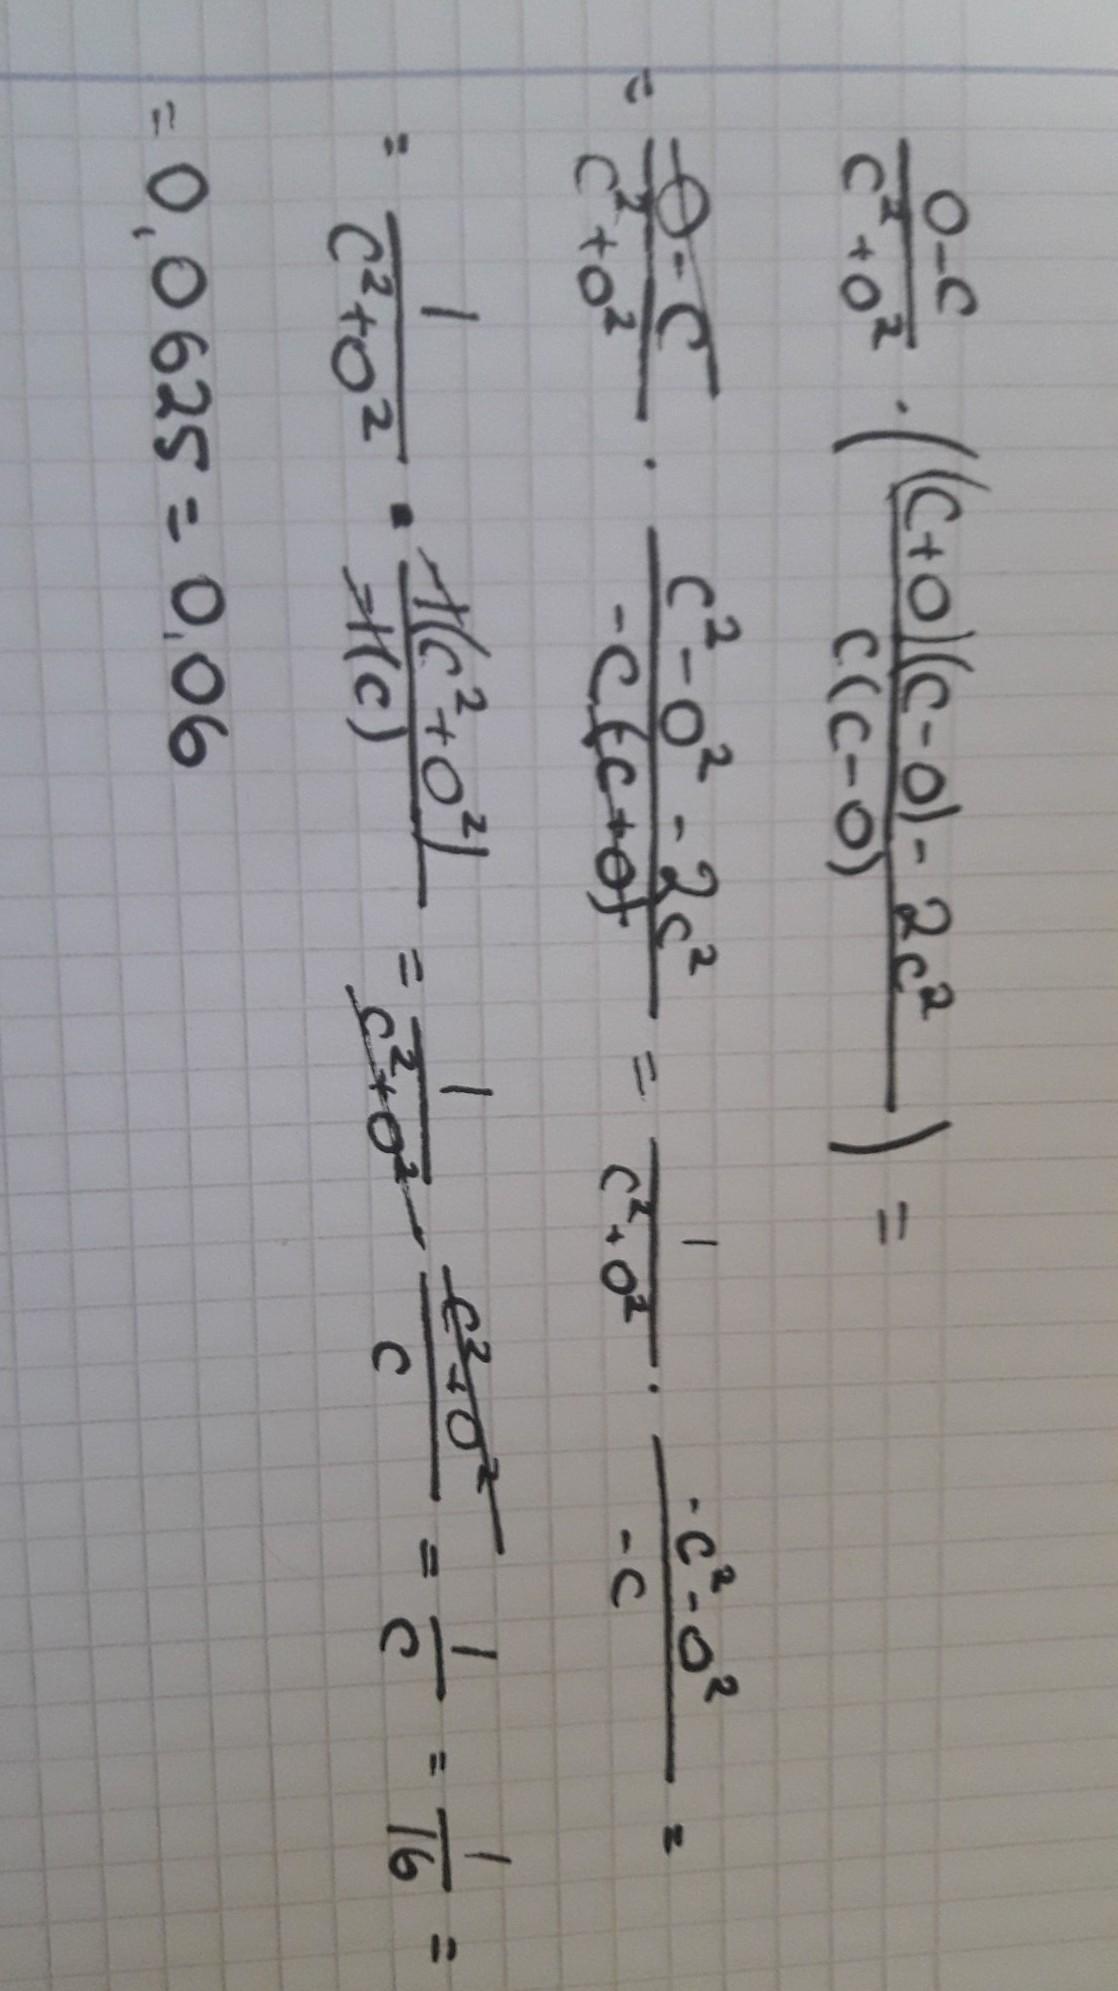 (O-C)/(C²+O²) · (((C+O)(C-O)-2C²)/(C(C-O))) =
= (O-C)/(C²+O²) · (C²-O²-2C²)/(-C(-C+O)) = 1/(C²+O²) · (-C²-O²)/(-C) =
= 1/(C²+O²) · (-1(C²+O²))/(-1(C)) = 1/(C²+O²) · (C²+O²)/C = 1/C = 1/16 =
= 0,0625 = 0,06